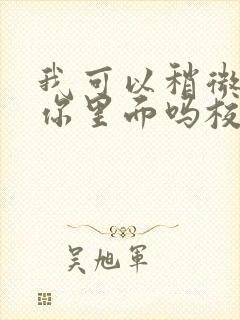 我可以稍微
你里而吗板
吴旭军